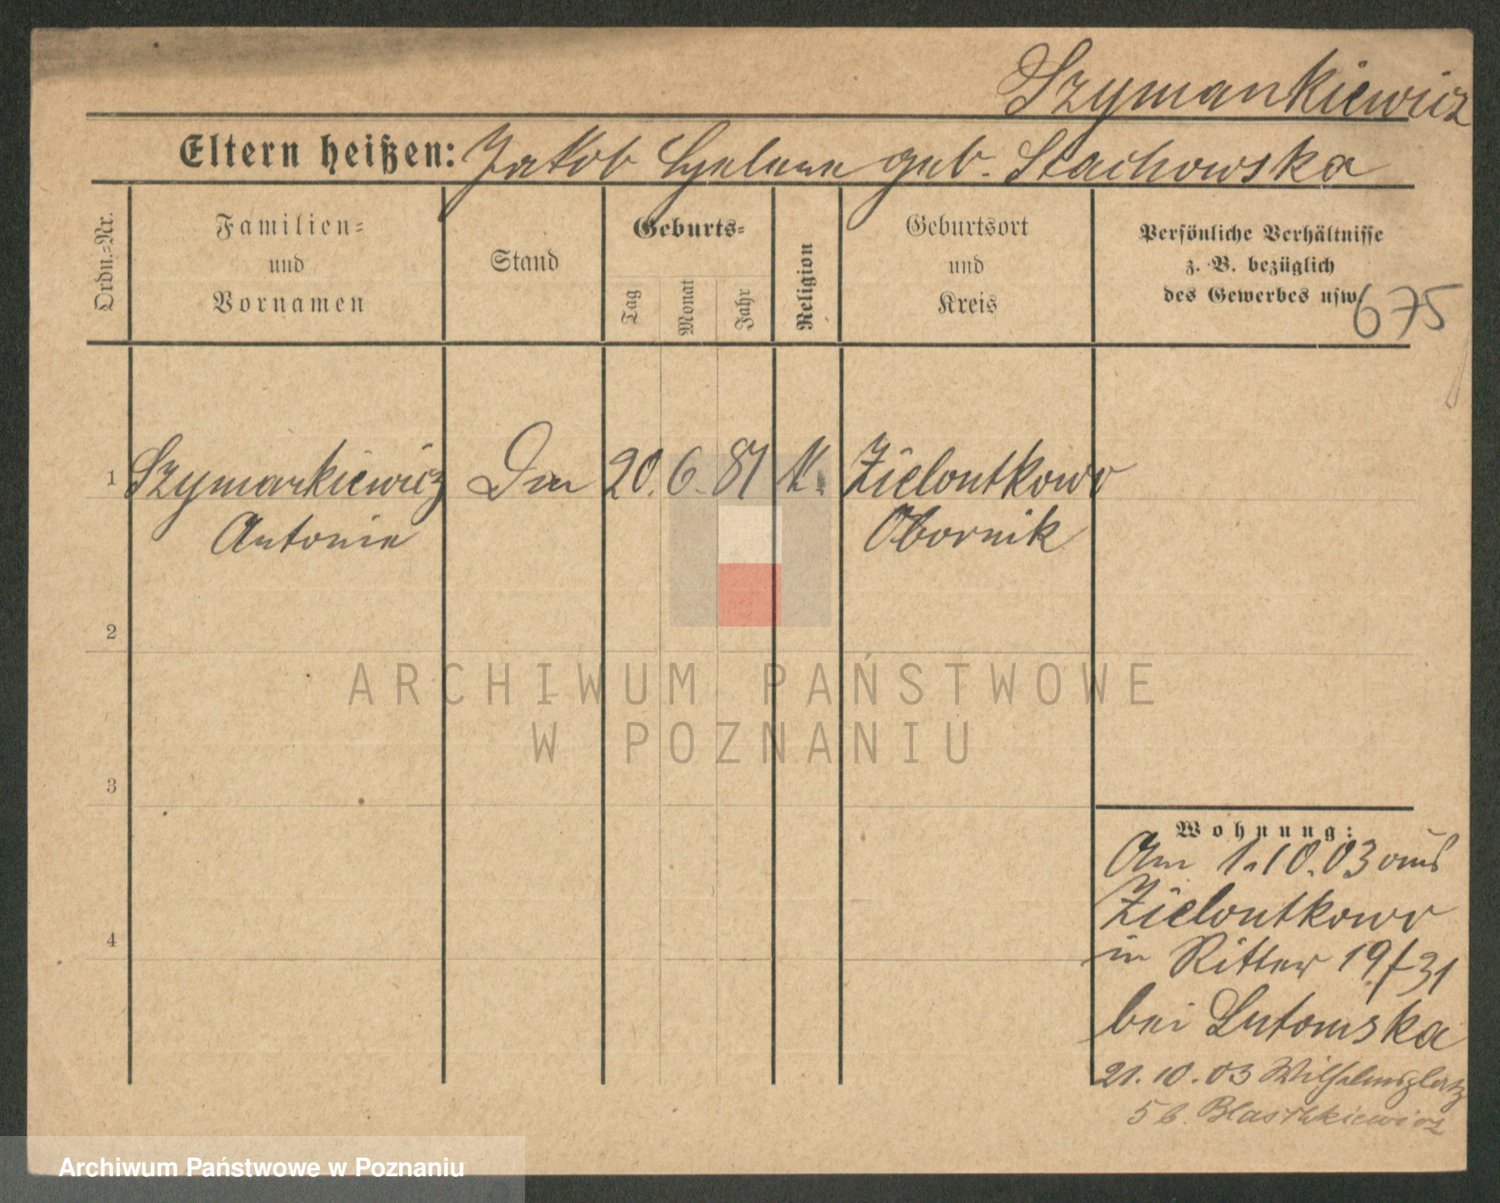 Szymankiewicz
Eltern heißen: Jakob Helene geb. Stachowska
Ordn.-Nr.
Familien-
und
Vornamen
Stand
Geburts-
Tag
Monat
Jahr
Religion
Geburtsort
und
Kreis
Persönliche Verhältnisse
z. B. bezüglich
des Gewerbes usw.
675
1 Szymankiewicz 20. 6. 81 K. Zielontkowo
Antonie Obornik
2
3
4
Wohnung:
Am 1.10.03 aus
Zielontkowo
in Ritter 19/31
bei Lutomska
21.10.03 Wilhelmsplatz
5 b. Blaschkiewicz
ARCHIWUM PAŃSTWOWE
W POZNANIU
Archiwum Państwowe w Poznaniu